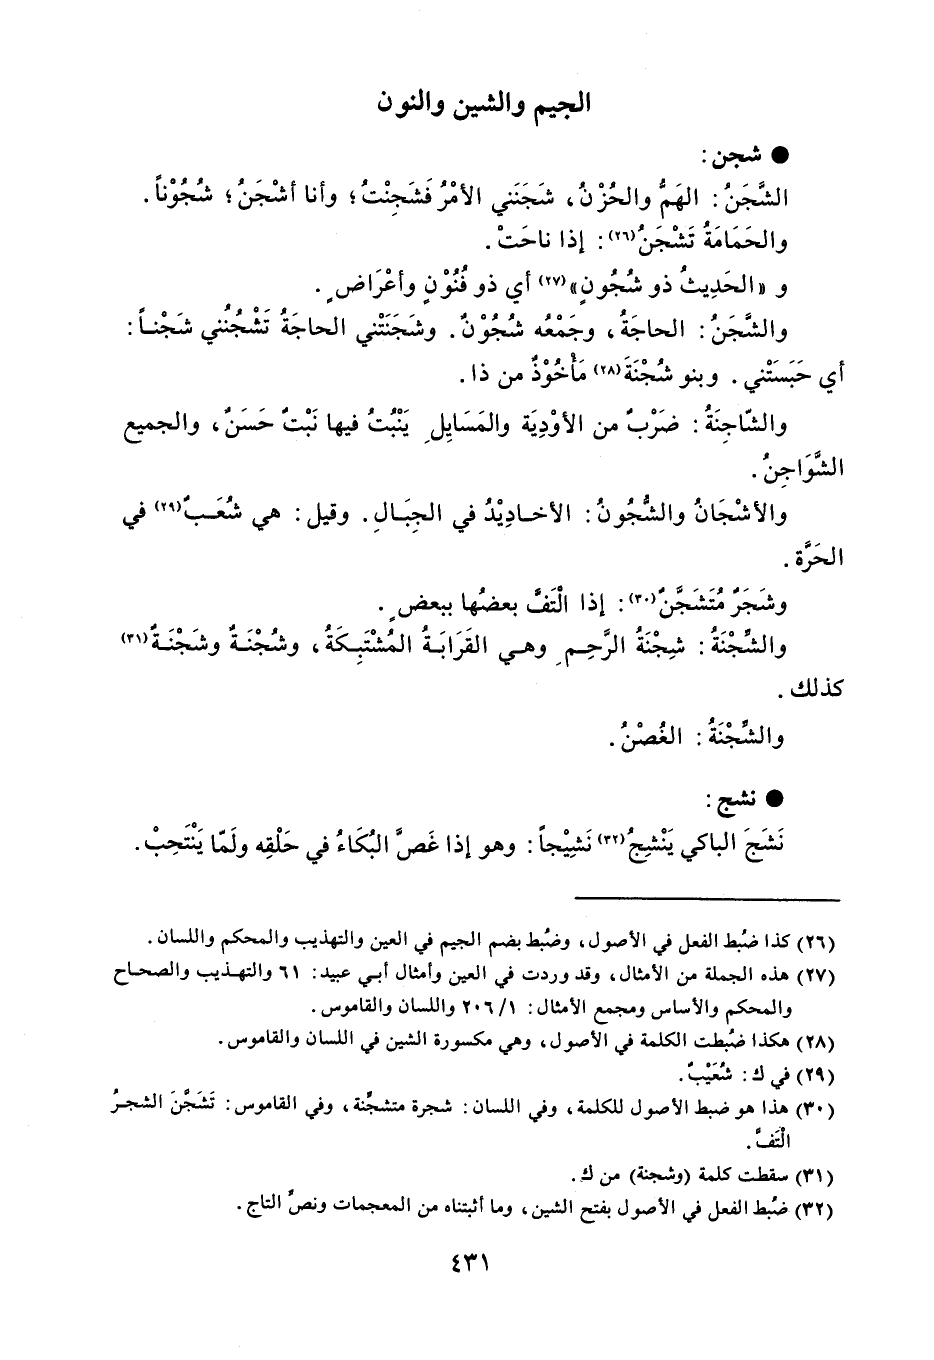 الجيم والشين والنون
● شجن :
الشَّجَنُ : الهَمُّ والحُزْنُ ، شَجَنَني الأمْرُ فَشَجِنْتُ ؛ وأنا أشْجَنُ ؛ شُجُوْناً .
والحَمَامَةُ تَشْجَنُ(٢٦) : إذا ناحَتْ .
و «الحَدِيثُ ذو شُجُونٍ»(٢٧) أي ذو فُنُوْنٍ وأعْرَاضٍ .
والشَّجَنُ : الحاجَةُ ، وجَمْعُه شُجُوْنٌ . وشَجَنَتْني الحاجَةُ تَشْجُنُني شَجْنـاً :
أي حَبَسَتْني . وبنو شُجْنَةَ(٢٨) مَأْخُوْذٌ من ذا .
والشّاجِنَةُ : ضَرْبٌ من الأوْدِيَة والمَسَايِلِ يَنْبُتُ فيها نَبْتٌ حَسَنٌ ، والجميع
الشَّوَاجِنُ .
والأشْجَانُ والشُّجُونُ : الأخـادِيْدُ في الجِبَـالِ . وقيل : هي شُعَـبٌ(٢٩) في
الحَرَّة .
وشَجَرٌ مُتَشَجَّنٌ(٣٠) : إذا الْتَفَّ بعضُها ببعضٍ .
والشِّجْنَةُ : شِجْنَةُ الرَّحِـمِ وهـي القَرَابَـةُ المُشْتَبِـكَةُ ، وشُجْنَـةٌ وشَجْنَـةٌ(٣١)
كذلك .
والشِّجْنَةُ : الغُصْنُ .
● نشج :
نَشَجَ الباكي يَنْشِجُ(٣٢) نَشِيْجاً : وهو إذا غَصَّ البُكَاءُ في حَلْقِه ولَمّا يَنْتَحِبْ .
(٢٦) كذا ضُبط الفعل في الأصول ، وضُبط بضم الجيم في العين والتهذيب والمحكم واللسان .
(٢٧) هذه الجملة من الأمثال ، وقد وردت في العين وأمثال أبـي عبيد : ٦١ والتهـذيب والصحـاح
والمحكم والأساس ومجمع الأمثال : ١/ ٢٠٦ واللسان والقاموس .
(٢٨) هكذا ضُبطت الكلمة في الأصول ، وهي مكسورة الشين في اللسان والقاموس .
(٢٩) في ك : شُعَيْبٌ .
(٣٠) هذا هو ضبط الأصول للكلمة ، وفي اللسان : شجرة متشجِّنة ، وفي القاموس : تَشَجَّنَ الشجـرُ
الْتَفَّ .
(٣١) سقطت كلمة (وشجنة) من ك .
(٣٢) ضُبط الفعل في الأصول بفتح الشين ، وما أثبتناه من المعجمات ونصِّ التاج .
٤٣١